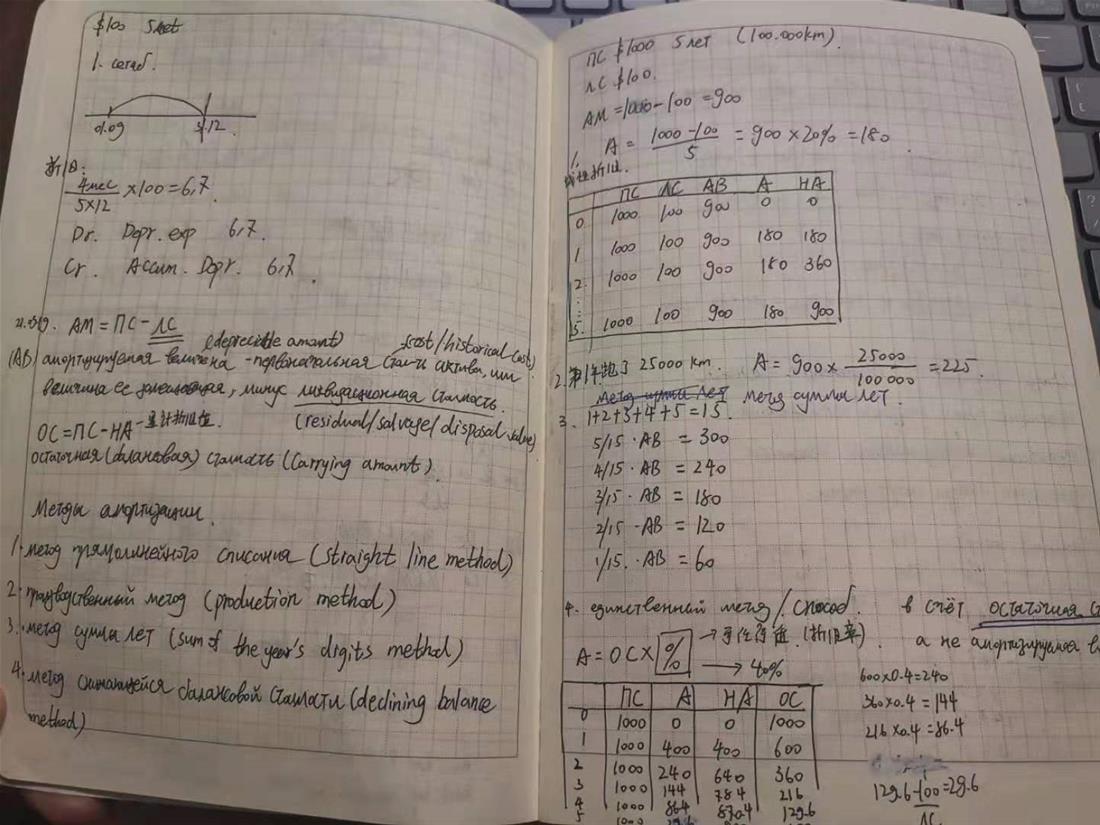 $100 5лет
1. сентяб.
01.09 31.12
折旧:
4мес/5×12 ×100=6,7.
Dr. Depr. exp 6,7.
Cr. Accum. Depr. 6,7.
AM=ПС-ЛС
(depreciable amount) cost/historical cost)
(АВ) амортизируемая величина -первоначальная стои-ть актива, или
величина ее , минус ликвидационная стоимость.
ОС=ПС-НА-累计折旧值. (residual/salvage/disposal value)
остаточная (балановая) стоимость (Carrying amount).
Методы амортизации.
1. метод прямолинейного списания (straight line method)
2. производственный метод (production method)
3. метод сумма лет (sum of the year's digits method)
4. метод снижающейся балансовой стоимости (declining balance
method)
ПС $1000 5 лет (100.000km).
ЛС $100.
AM=1000-100=900
1. A = 1000-100/5 = 900×20% =180
线性折旧
ПС ЛС АВ А НА
0. 1000 100 900 0 0
1 1000 100 900 180 180
2. 1000 100 900 180 360
⋮
5. 1000 100 900 180 900
2. 第1年跑了25000 km. A = 900× 25000/100000 =225.
метод сумма лет метод сумма лет.
3. 1+2+3+4+5=15.
5/15 · АВ = 300
4/15 · АВ = 240
3/15 · АВ = 180
2/15 · АВ = 120
1/15. · АВ = 60
4. единственный метод/способ. в счёт остаточная
(折旧率). а не амортизируемая
A=ОС×% → 40%
600×0.4=240
360×0.4=144
216×0.4=86.4
129.6-100=29.6
ЛС
ПС А НА ОС
0 1000 0 0 1000
1 1000 400 400 600
2 1000 240 640 360
3 1000 144 784 216
4 1000 86.4 870.4 129.6
5 1000 29.6